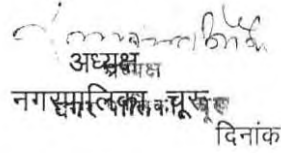 अध्यक्ष
नगरपालिका, चूरू
दिनांक